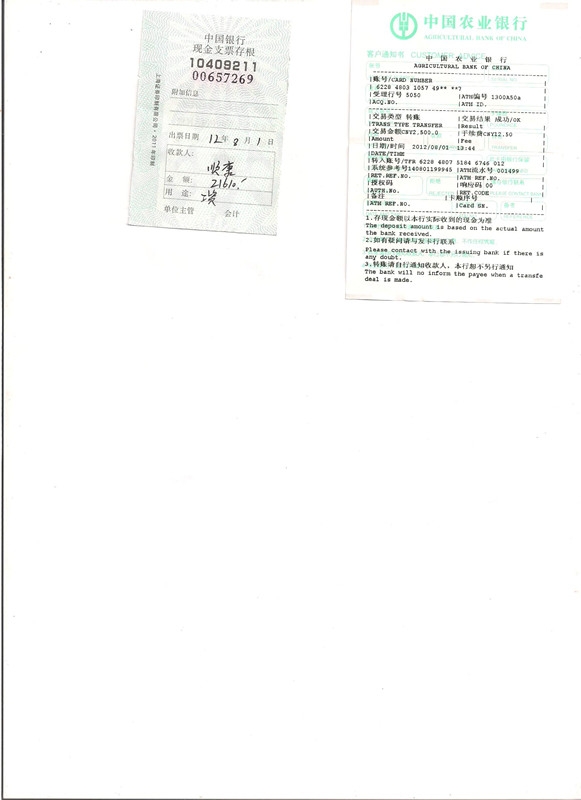 中国银行
现金支票存根
10409211
00657269
附加信息
出票日期 12年 8月 1日
收款人:
顺康
金 额: 21610.-
用 途: 资
单位主管 会计
上海证券印制有限公司·2011年印制
中国农业银行
AGRICULTURAL BANK OF CHINA
客户通知书 CUSTOMER ADVICE
中 国 农 业 银 行
AGRICULTURAL BANK OF CHINA
账号/CARD NUMBER
6228 4803 1057 49** **7
受理行号 5050 ATM编号 1300A50A
ACQ.NO. ATM ID.
交易类型 转账 交易结果 成功/OK
TRANS TYPE TRANSFER Result
交易金额CNY2,500.0 手续费CNY12.50
Amount Fee
日期/时间 2012/08/01 13:44
DATE/TIME
转入账号/TFR 6228 4807 5184 6746 012
系统参考号140801199945 ATM流水号 001499
RET.REF.NO. ATM REF.NO.
授权码 响应码 00
AUTH.NO. RET.CODE
备注 卡顺序号
ATM REF NO. Card SN.
1.存现金额以本行实际收到的现金为准
The deposit amount is based on the actual amount
the bank received.
2.如有疑问请与发卡行联系
Please contact with the issuing bank if there is
any doubt.
3.转账请自行通知收款人，本行恕不另行通知
The bank will no inform the payee when a transfe
deal is made.